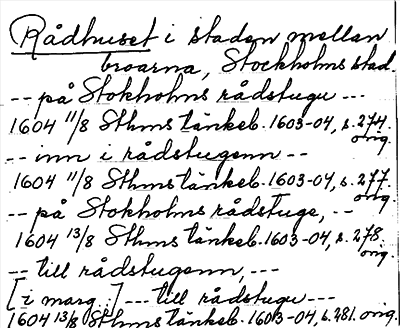 Rådhuset i staden mellan
broarna, Stockholms stad.
-- på Stokholms rådstugu ---
1604 11/8 Sthms tänkeb. 1603-04, s. 274. orig.
-- inn i rådstugenn --
1604 11/8 Sthms tänkeb. 1603-04, s. 277. orig.
-- på Stokholms rådstuge, --
1604 13/8 Sthms tänkeb. 1603-04, s. 278. orig.
-- till rådstugenn, ---
[i marg.:] --- till rådstugu ---
1604 13/8 Sthms tänkeb. 1603-04, s. 281. orig.